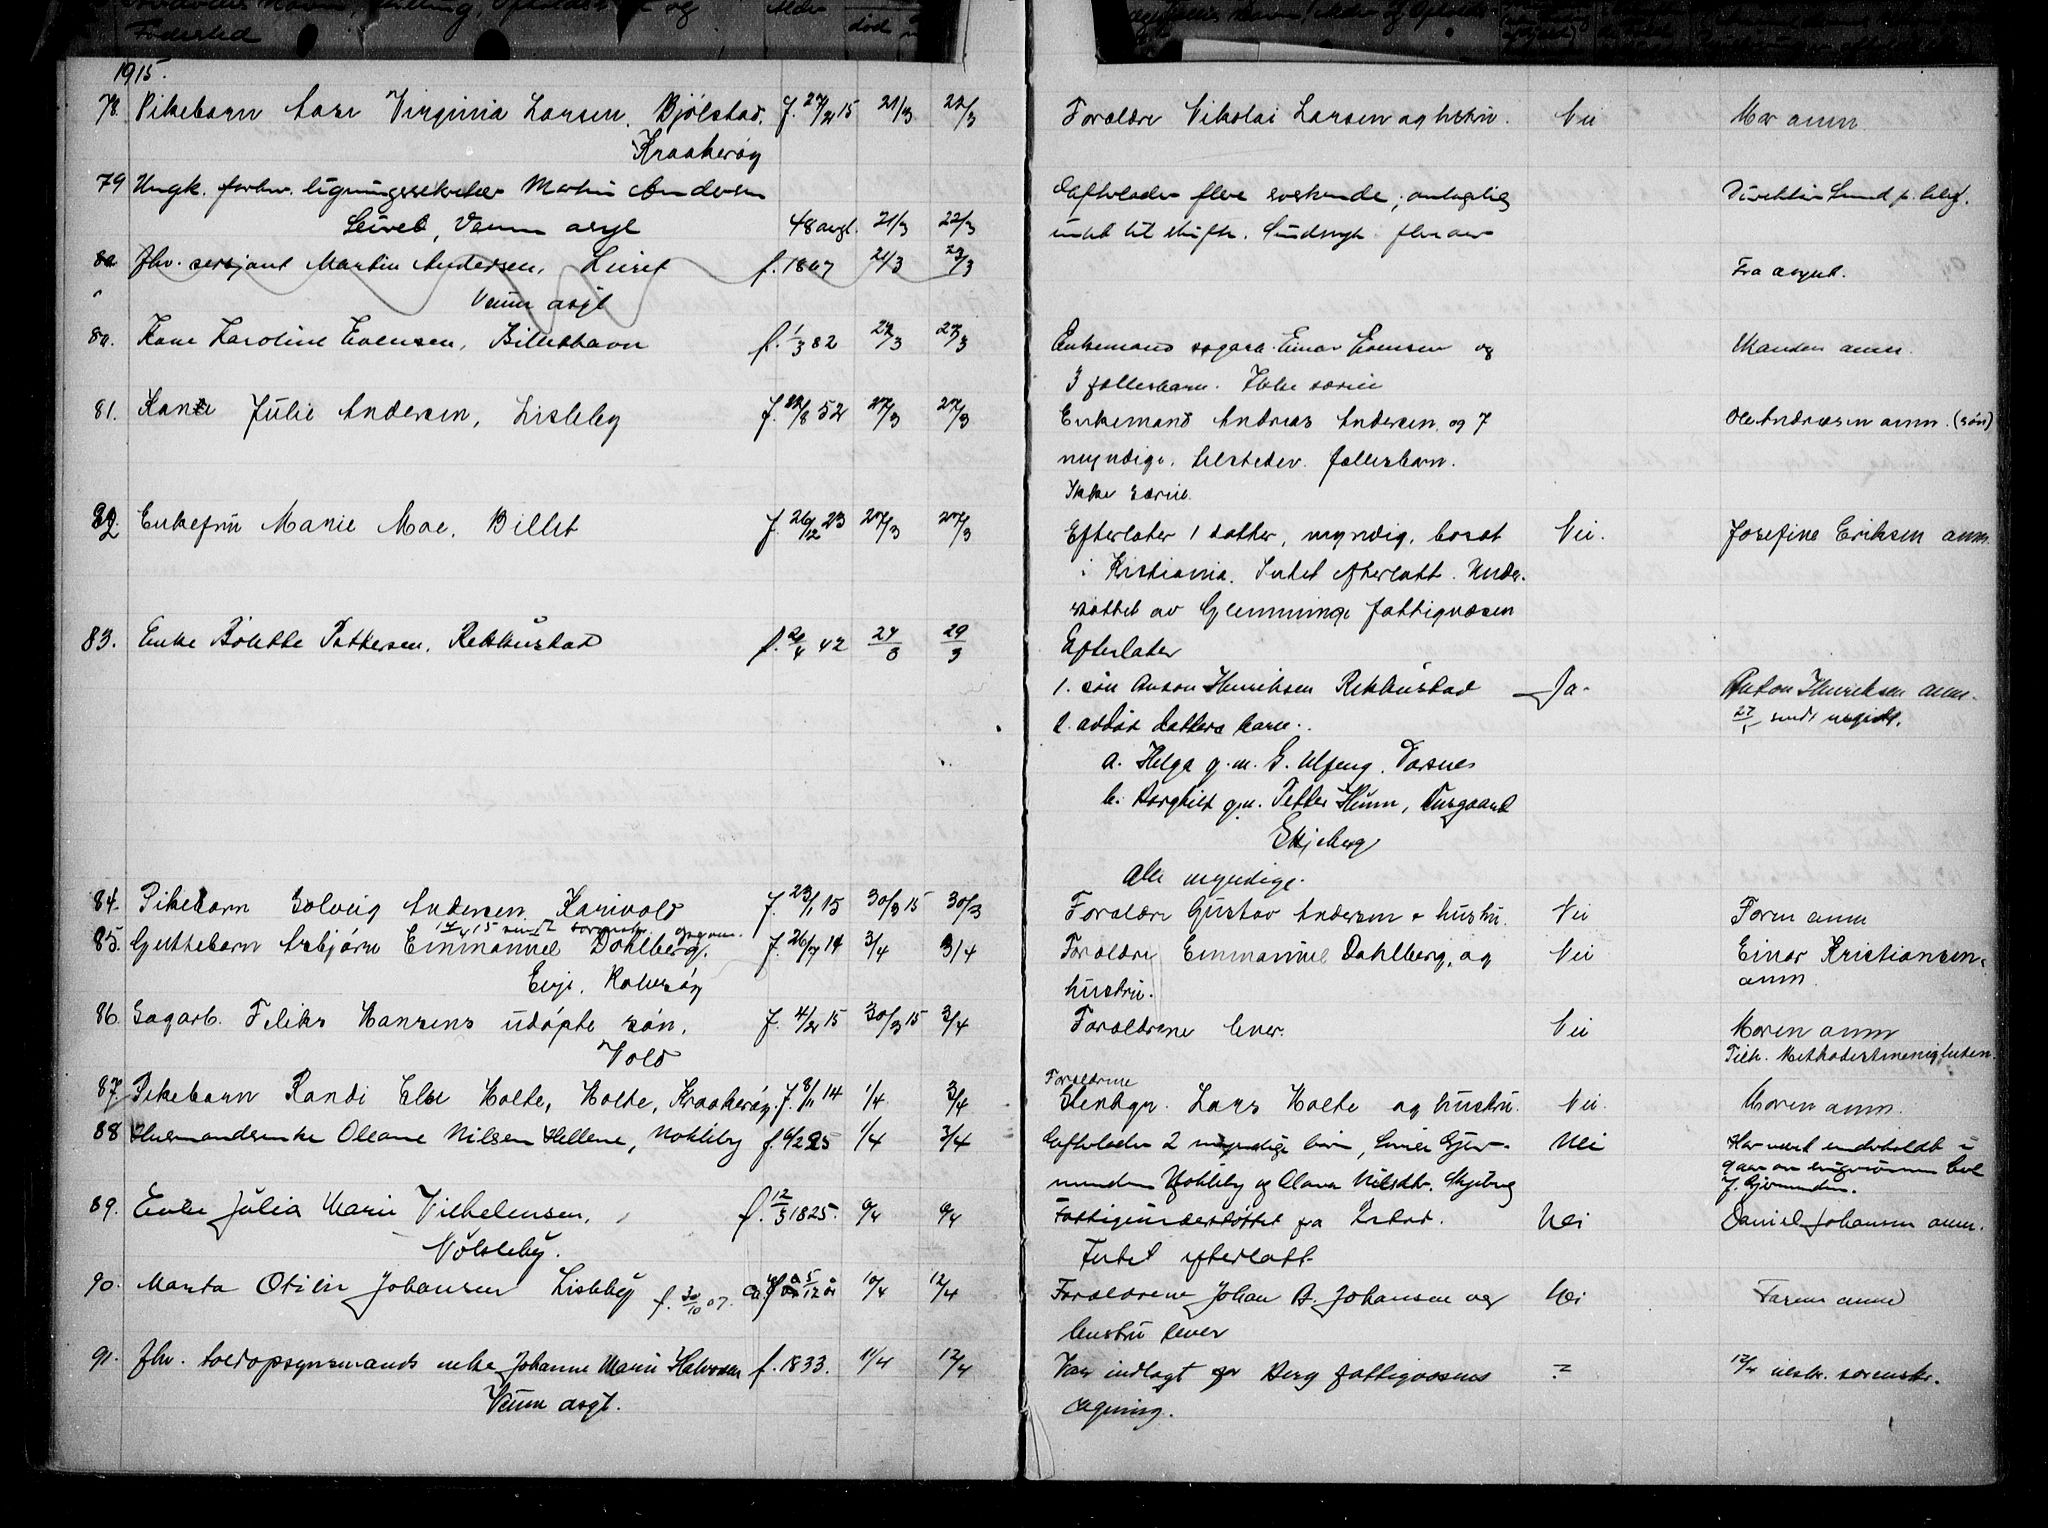 1915.
78. Pikebarn Aase Virginia Larsen, Bjølstad, f. 27/2 15 21/3 22/3 Forældre Nikolai Larsen og hustru. Nei Mor anm.
Kraakerøy
79 Ungk. forhv. ligningssekretær Martin Andersen Efterlader flere søskende, antagelig Direktør Lund p. telef.
Veum asyl 48 aar gl. 21/3 22/3 intet til skifte. Sindssyk flere aar
80 Fhv. sersjant Martin Andersen, f. 1867 21/3 23/3 Fra asylet.
Veum asyl
80. Kone Karoline Evensen, Billethavn f. 1/3 82 23/3 27/3 Enkemand sagarb. Einar Evensen og Manden anm.
3 fællesbarn. Ikke særeie
81. Kone Julie Andersen, Lisleby f. 22/8 52 27/3 27/3 Enkemand Andreas Andersen og 7 Ole Andreasen anm. (søn)
myndige, tilstedev. fællesbarn.
Ikke særeie.
82. Enkefru Marie Moe, Billet f. 26/12 23 27/3 27/3 Efterlater 1 datter, myndig, bosat Nei. Josefine Eriksen anm.
i Kristiania. Intet efterlatt. Under-
støttet av Glemminge fattigvæsen
83. Enke Bolette Pettersen, Rekkustad f. 20/4 42 24/3 29/3 Efterlater
1. søn Anton Henriksen Rekkustad Ja. Anton Henriksen anm.
2. avdød datters barn. 27/5 sendt
a. Helga g.m. G. Ulfeng, Torsnes
b. Borghild g.m. Petter Hunn, Tursgaard
Skjeberg
alle myndige.
84. Pikebarn Solveig Andersen Karivold f. 23/1 15 30/3 15 30/3 Forældre Gustav Andersen & hustru. Nei Faren anm
85. Guttebarn Asbjørn Emmanuel Dahlberg. f. 26/7 14 3/4 3/4 Forældre Emmanuel Dahlberg, og Nei Einar Kristiansen
Evje, Rolvsøy hustru. anm.
86. Sagarb. Feliks Hansens udøpte søn, f. 4/2 15 30/3 15 3/4 Forældrene lever. Nei Moren anm
Vold Tilh. Methodistmenigheten.
Forældrene
87. Pikebarn Randi Else Holte, Holte, Kraakerøy. f. 8/1 14 1/4 3/4 Stenhgr. Lars Holte og hustru. Nei. Moren anm.
88 Husmandsenke Oleane Nilsen Hellene, Nokleby f. 6/2 25 1/4 3/4 Efterlader 2 myndige barn, Nei Har været underholdt i
Nokleby og Olava Nilsdtr. Skjeberg
89. Enke Julia Marie Vilhelmsen, f. 12/3 1825. 6/4 6/4 Fattigunderstøttet fra Nei Daniel Johansen anm.
Nøkleby. Intet efterlatt
90. Marta Otilie Johansen Lisleby f. 30/10 07. 10/4 12/4 Forældrene Johan A. Johansen og Nei Faren anm
hustru lever
91. Fhv. toldopsynsmands enke Johanne Marie Halvorsen f. 1833. 11/4 12/4 Var indlagt for Berg fattigvæsens ? 12/4 sorenskr.
Veum asyl. regning.